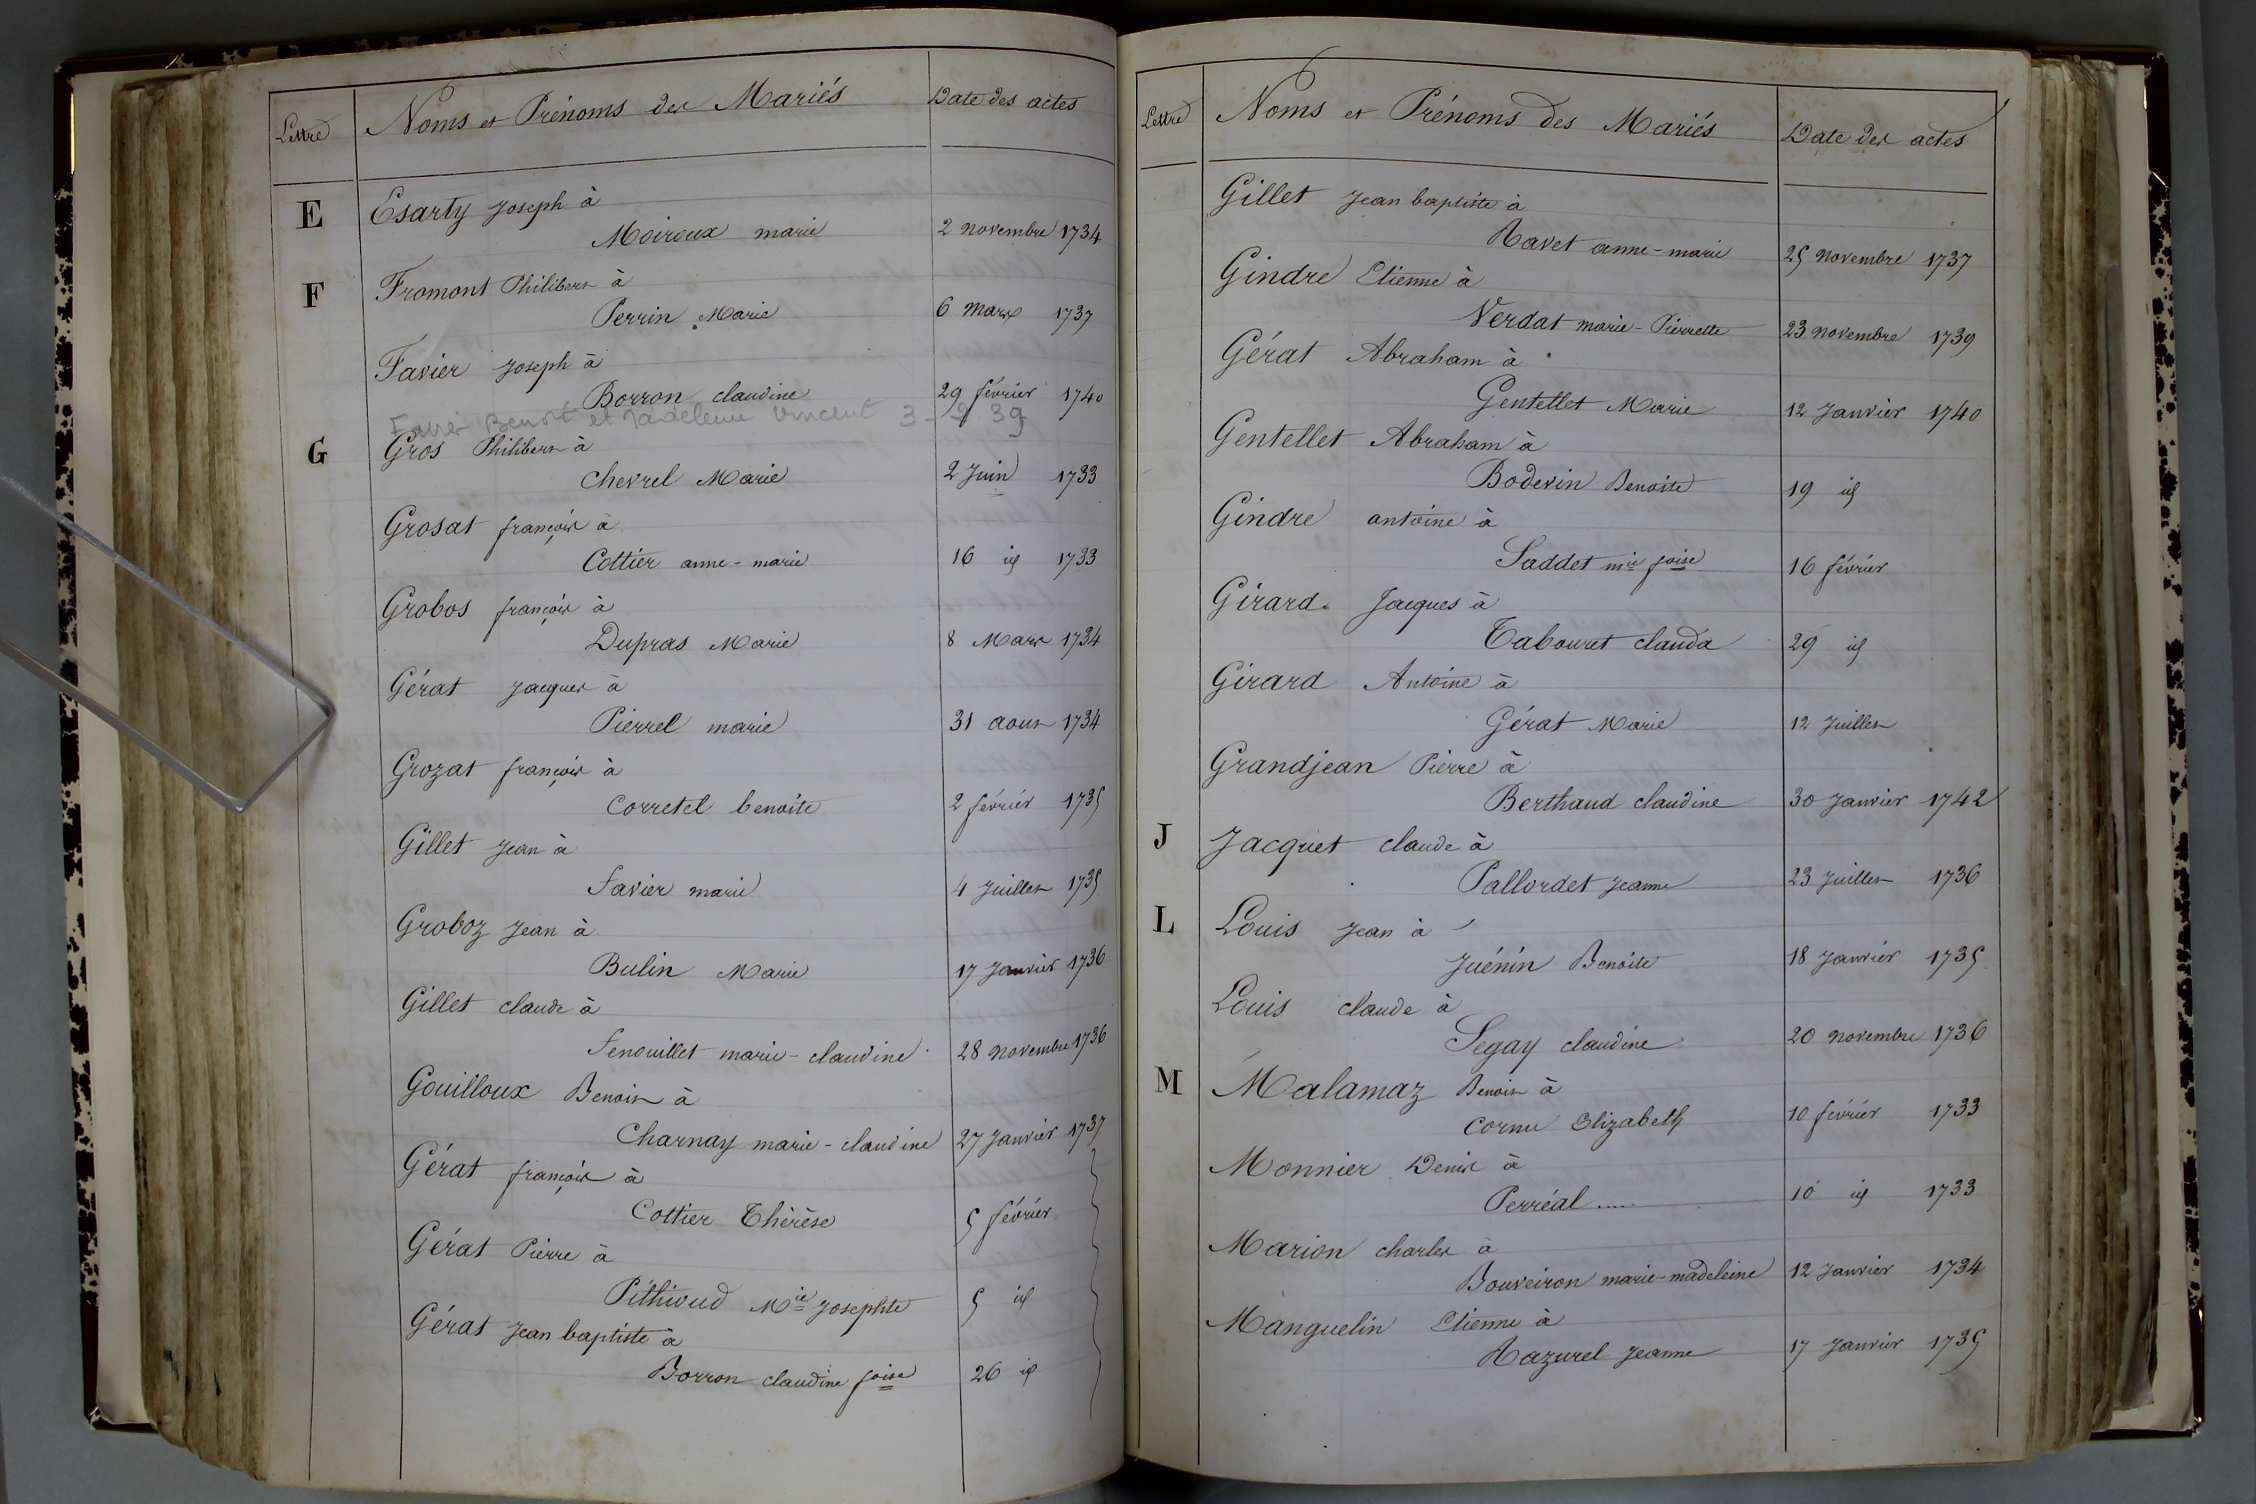 Lettre Noms et Prénoms des Mariés Date des actes
E Esarty Joseph à
Moiroux marie 2 novembre 1734
F Fromont Philibert à
Perrin Marie 6 Mars 1737
Favier Joseph à
Borron claudine 29 février 1740
Favier Benoit et Madeleine Vincent 3 - 2 39
G Gros Philibert à
Chevrel Marie 2 Juin 1733
Grosat françois à
Cottier anne-marie 16 id 1733
Grobos françois à
Dupras Marie 8 Mars 1734
Gérat Jacques à
Pierrel marie 31 aout 1734
Grozat françois à
Corretel benoite 2 février 1735
Gillet Jean à
favier marie 4 Juillet 1735
Groboz Jean à
Bulin Marie 17 Janvier 1736
Gillet claude à
fenouillet marie-claudine 28 novembre 1736
Gouilloux Benoit à
Charnay marie-claudine 27 Janvier 1737
Gérat françois à
Cottier Thérèse 5 février
Gérat Pierre à
Pithioud Mie Josephte 5 id
Gérat Jean baptiste à
Borron claudine foise 26 id
Lettre Noms et Prénoms des Mariés Date des actes
Gillet Jean baptiste à
Ravet anne-marie 25 novembre 1737
Gindre Etienne à
Verdat marie-Pierrette 23 novembre 1739
Gérat Abraham à
Gentellet Marie 12 Janvier 1740
Gentellet Abraham à
Bodevin Benoite 19 id
Gindre antoine à
Saddet mie foise 16 février
Girard Jacques à
Tabouret clauda 29 id
Girard Antoine à
Gérat Marie 12 Juillet
Grandjean Pierre à
Berthaud claudine 30 Janvier 1742
J Jacquet claude à
Pallordet Jeanne 23 Juillet 1736
L Louis Jean à
Juénin Benoite 18 Janvier 1735
Louis claude à
Segay claudine 20 novembre 1736
M Malamaz Benoit à
Cornu Elizabeth 10 février 1733
Monnier Denis à
Perréal ..... 10 id 1733
Marion charles à
Bouveiron marie-madeleine 12 Janvier 1734
Manguelin Etienne à
Razurel Jeanne 17 Janvier 1735